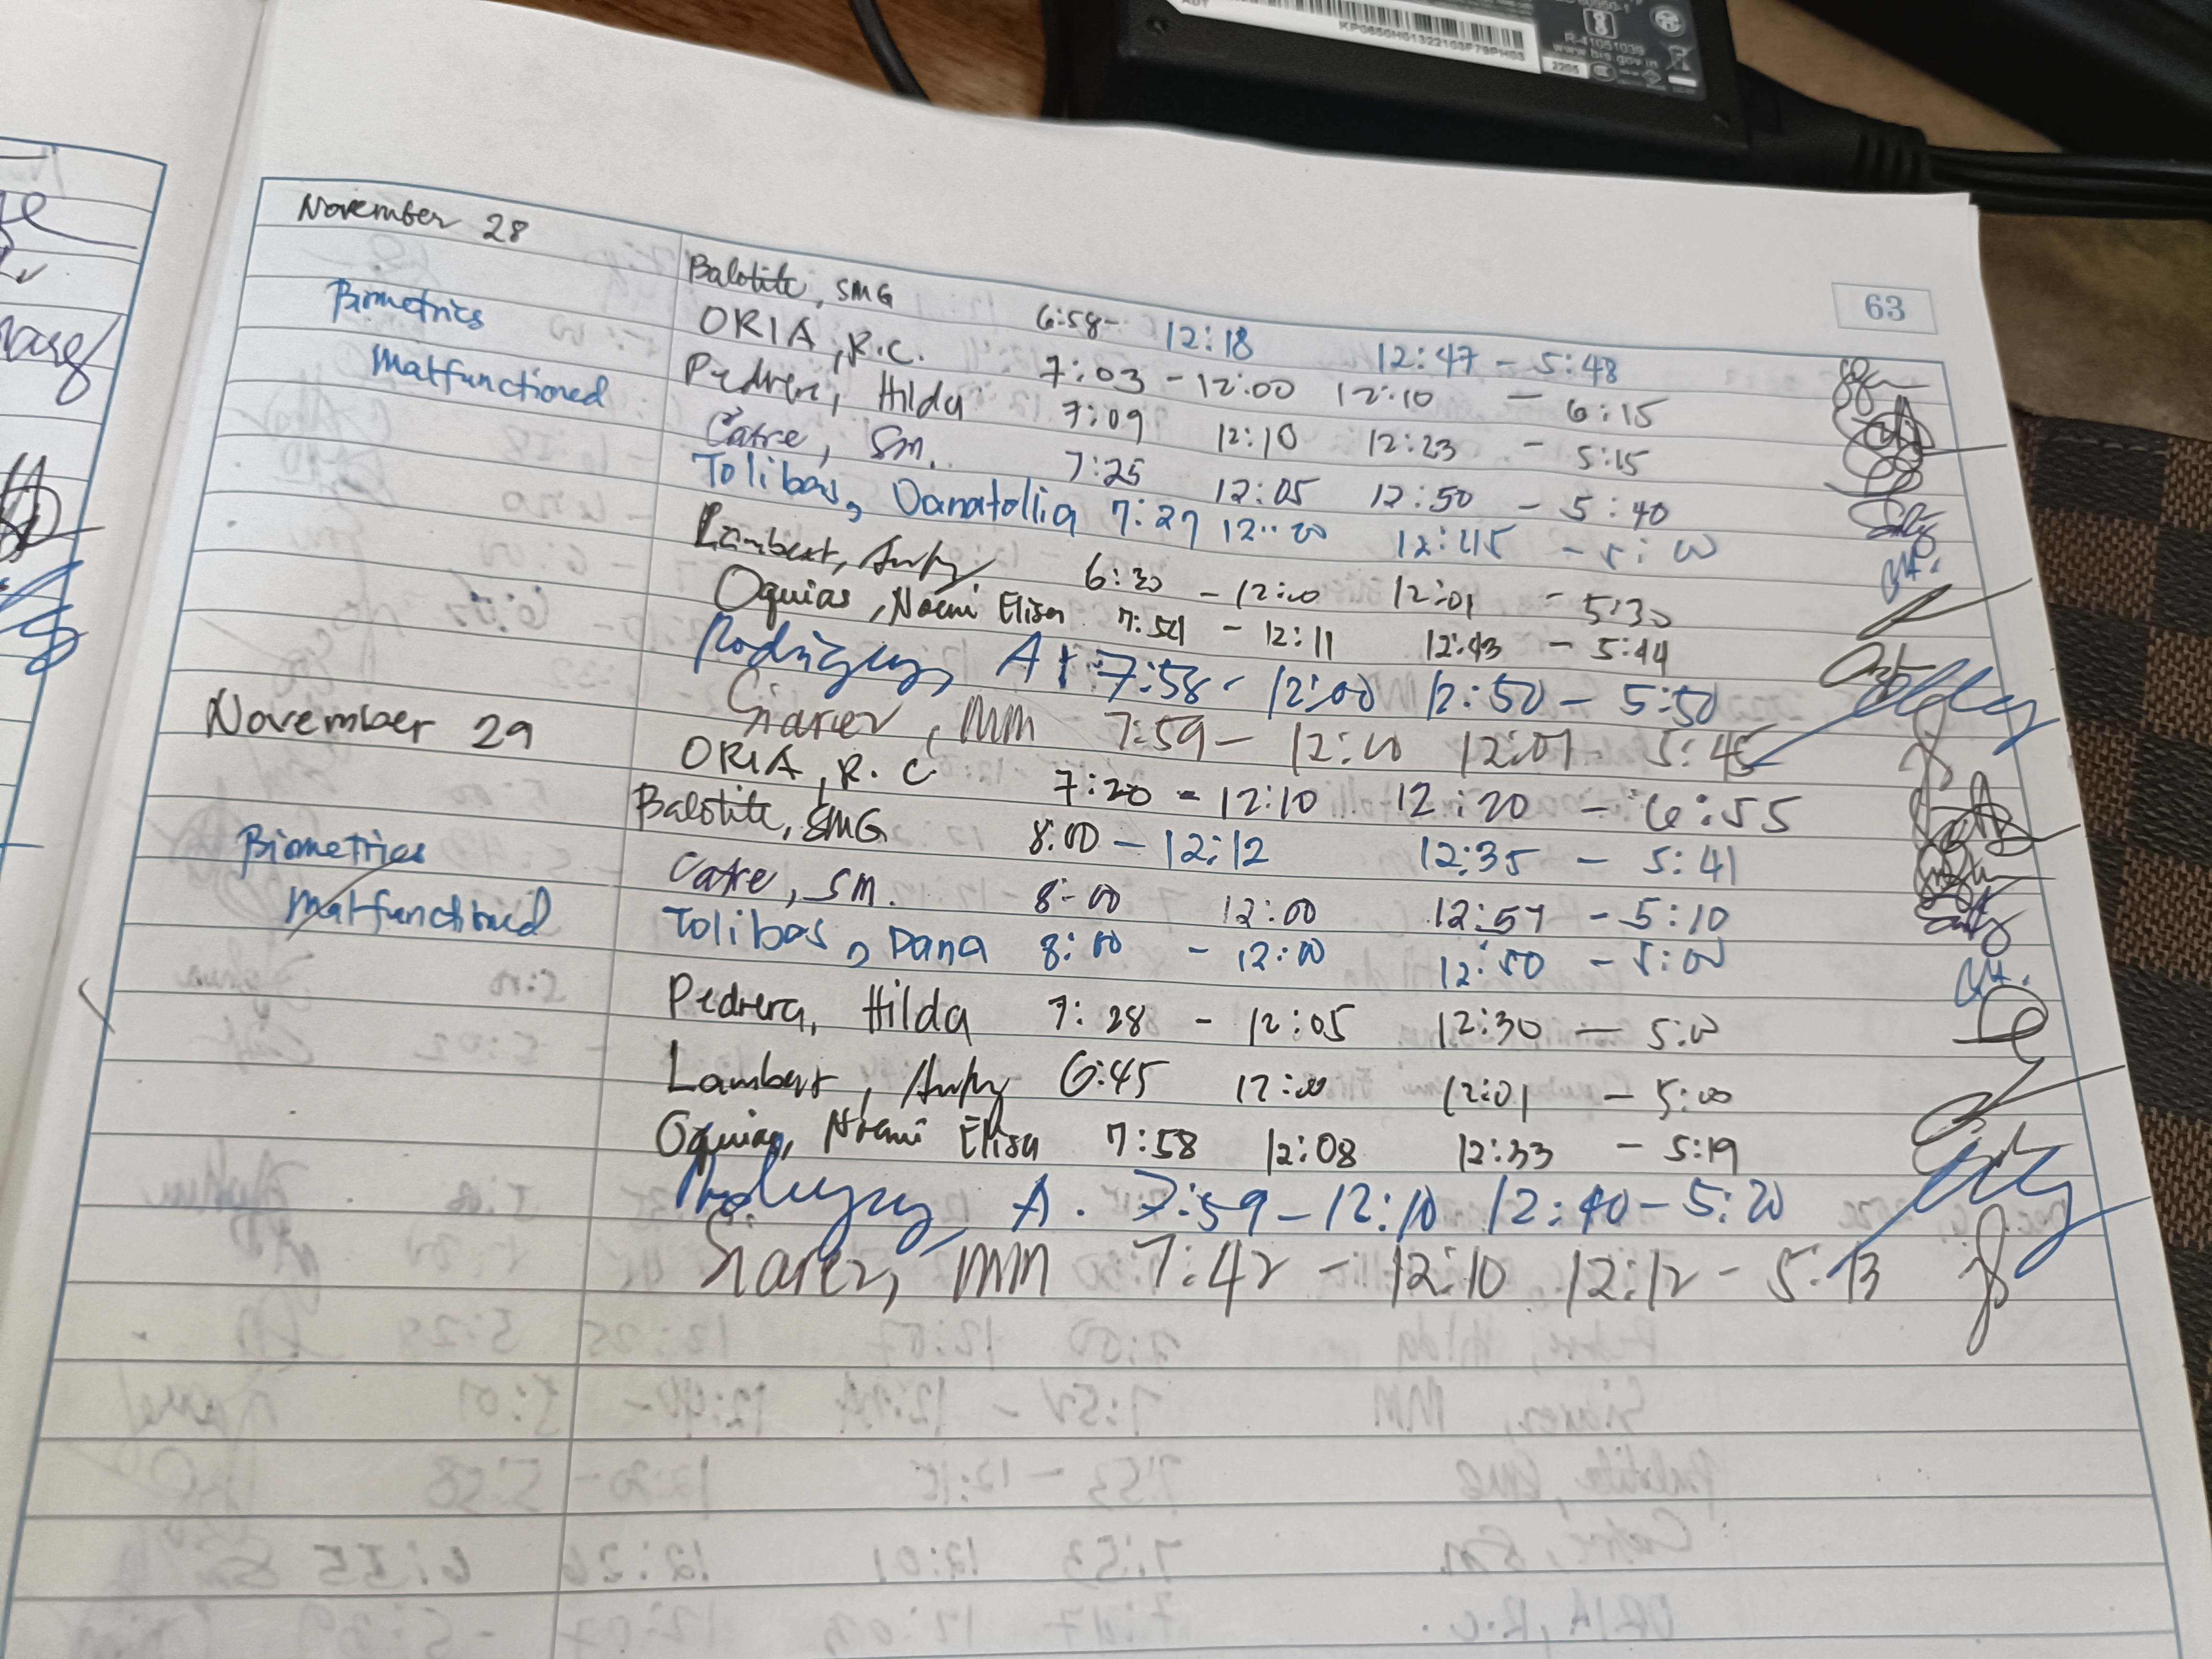 KP0650H01322103F79PH03
R-41051039
www.bis.gov.in
2205
63
November 28
Balotite, SMG 6:58- 12:18 12:47 - 5:48
Biometrics ORIA, R.C. 7:03 - 12:00 12:10 - 6:15
Malfunctioned Pedrera, Hilda 7:09 12:10 12:23 - 5:15
Catre, SM. 7:25 12:05 12:50 - 5:40
Tolibas, Danatollia 7:27 12:00 12:45 - 5:00
Lambert, 6:30 - 12:00 12:01 - 5:30
Oquias, Noemi Elisa 7:54 - 12:11 12:43 - 5:44
Rodriguez, A 7:58 - 12:00 12:50 - 5:50
Siarez, MM 7:59 - 12:00 12:01 - 5:45
November 29 ORIA, R.C 7:20 - 12:10 12:20 - 6:55
Balotite, SMG 8:00 - 12:12 12:35 - 5:41
Biometrics Catre, SM. 8:00 12:00 12:57 - 5:10
Malfunctioned Tolibas, Dana 8:00 - 12:00 12:50 - 5:00
Pedrera, Hilda 7:28 - 12:05 12:30 - 5:00
Lambert, 6:45 12:00 12:01 - 5:00
Oquias, Noemi Elisa 7:58 12:08 12:33 - 5:19
Rodriguez, A. 7:59 - 12:10 12:40 - 5:20
Siarez, MM 7:42 - 12:10 12:12 - 5:13